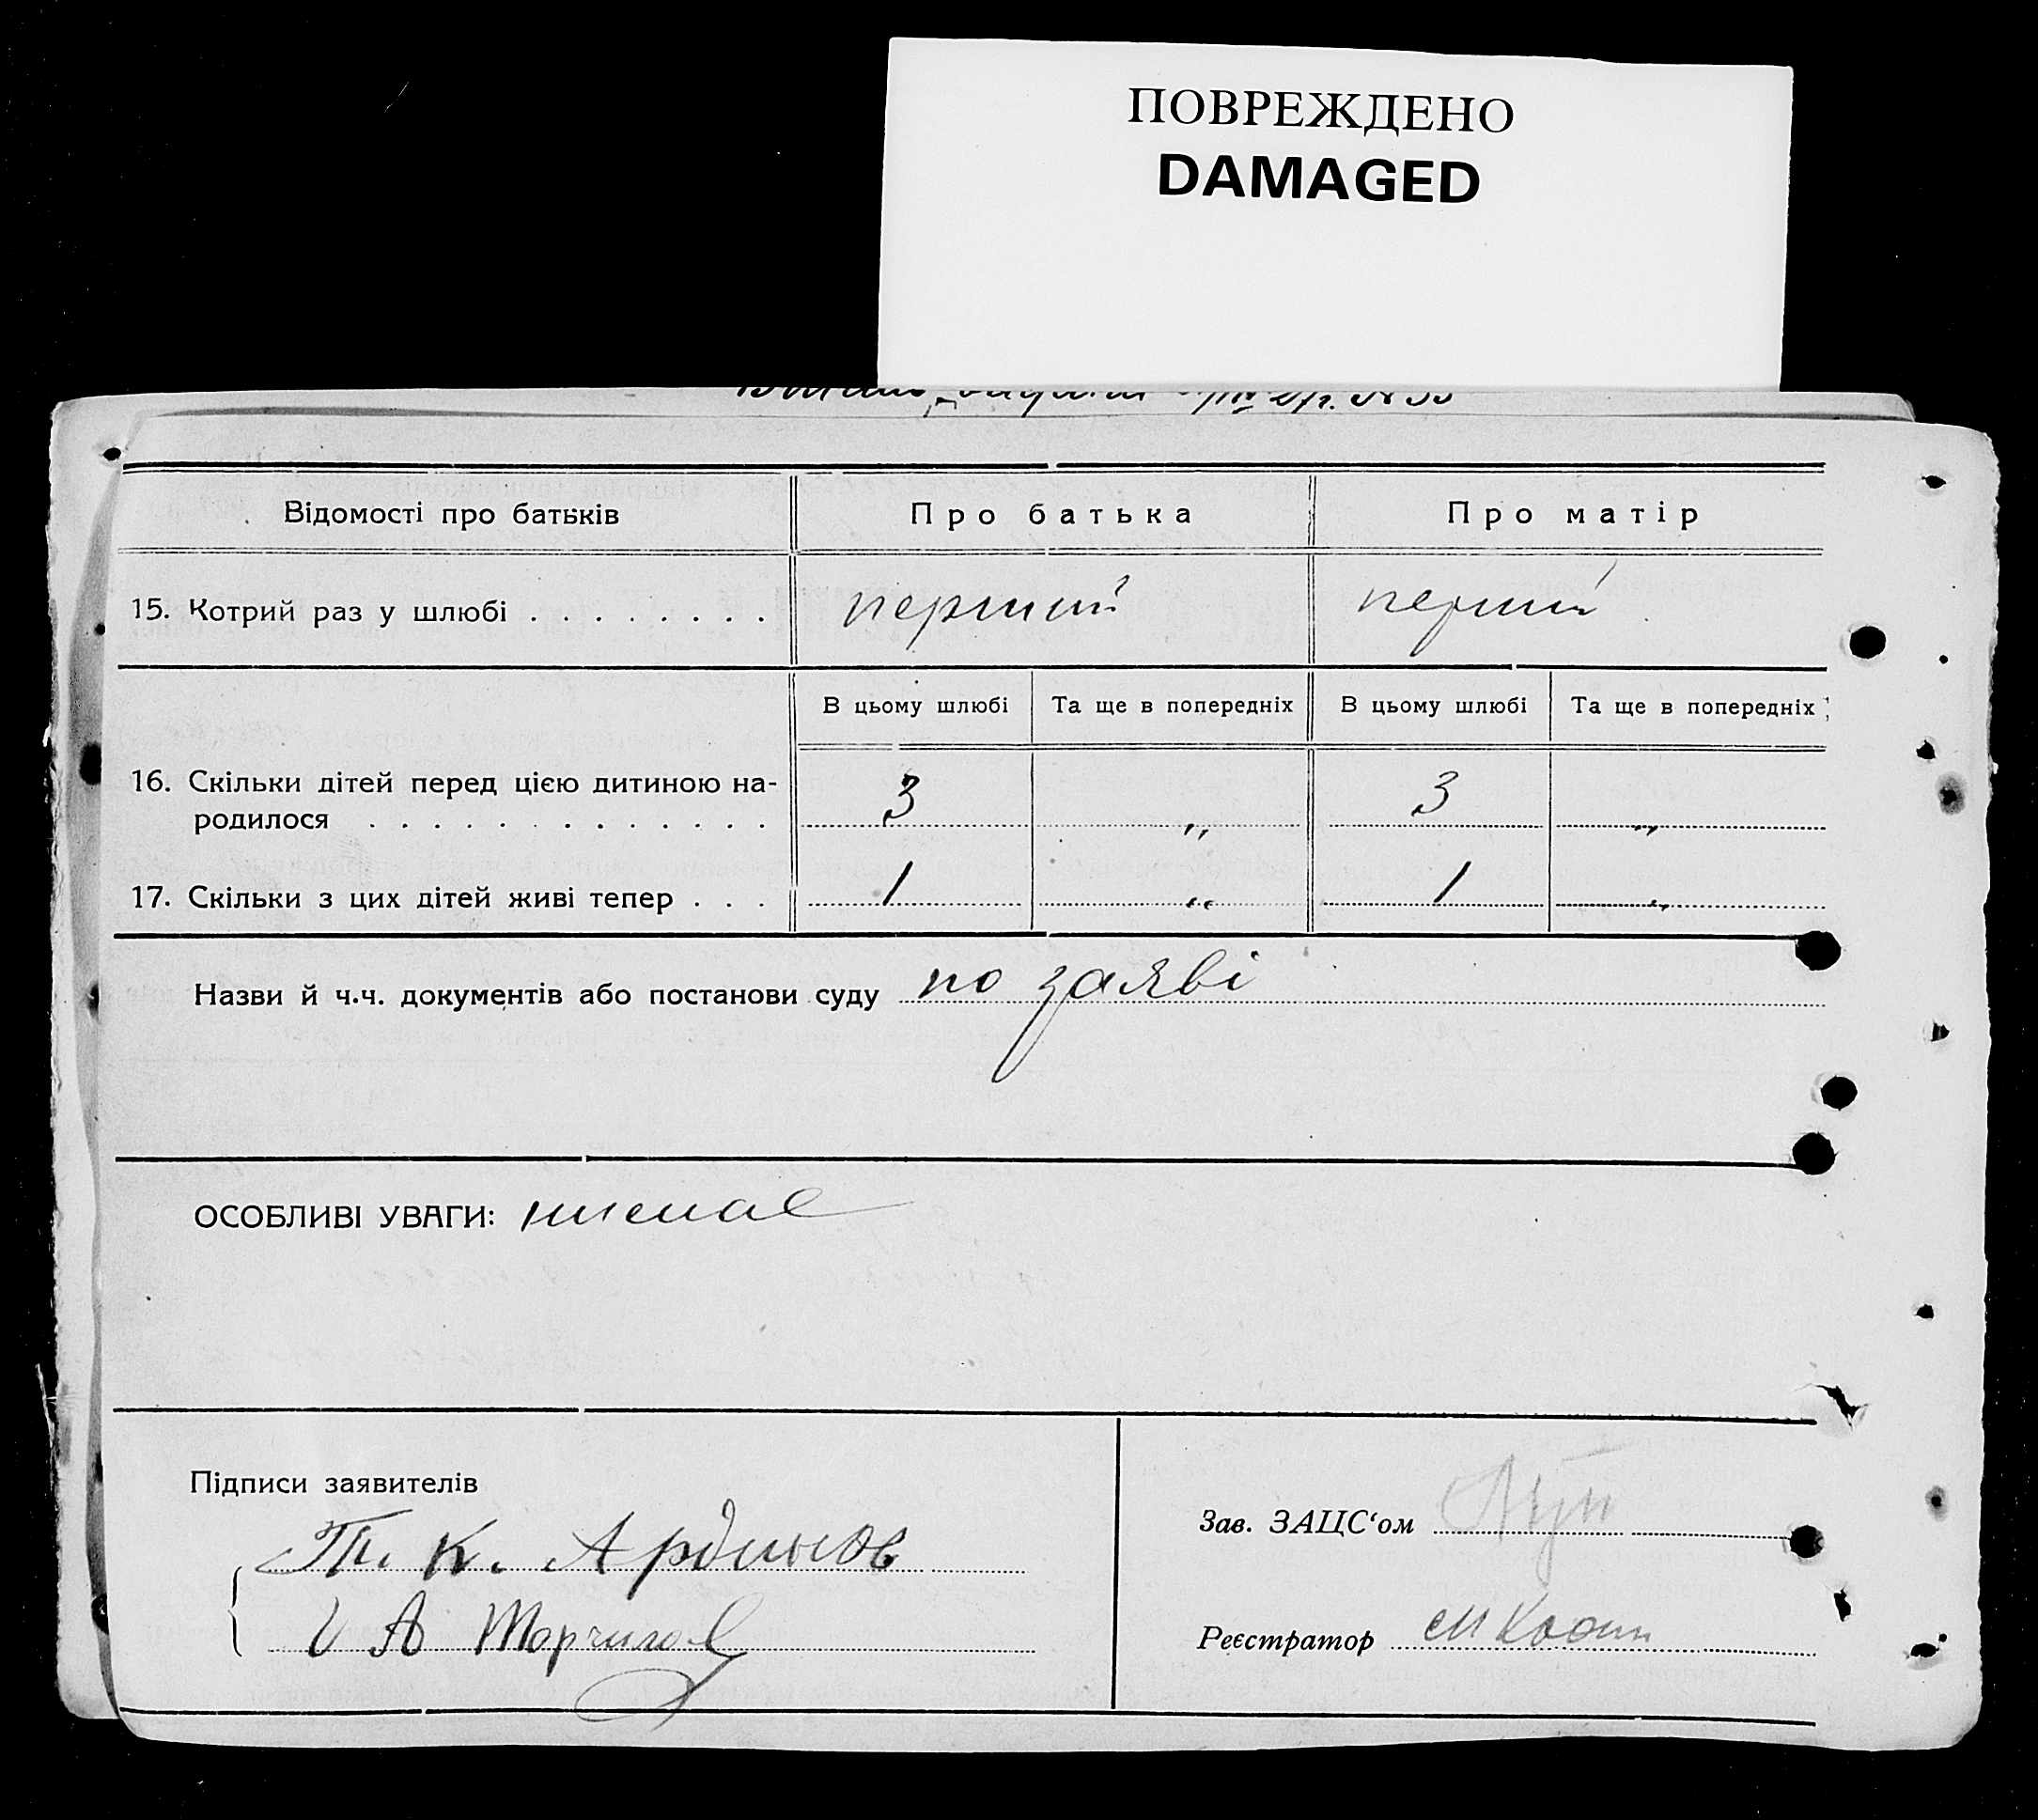 ПОВРЕЖДЕНО
DAMAGED
Відомості про батьків
Про батька
Про матір
15. Котрий раз у шлюбі
перший
перший
В цьому шлюбі
Та ще в попередніх
В цьому шлюбі
Та ще в попередніх
16. Скільки дітей перед цією дитиною на-
родилося
3
„
3
„
17. Скільки з цих дітей живі тепер
1
„
1
„
Назви й ч.ч. документів або постанови суду по заяві
ОСОБЛИВІ УВАГИ: немає
Підписи заявителів
К.
А
Зав. ЗАЦС‘ом
Реєстратор